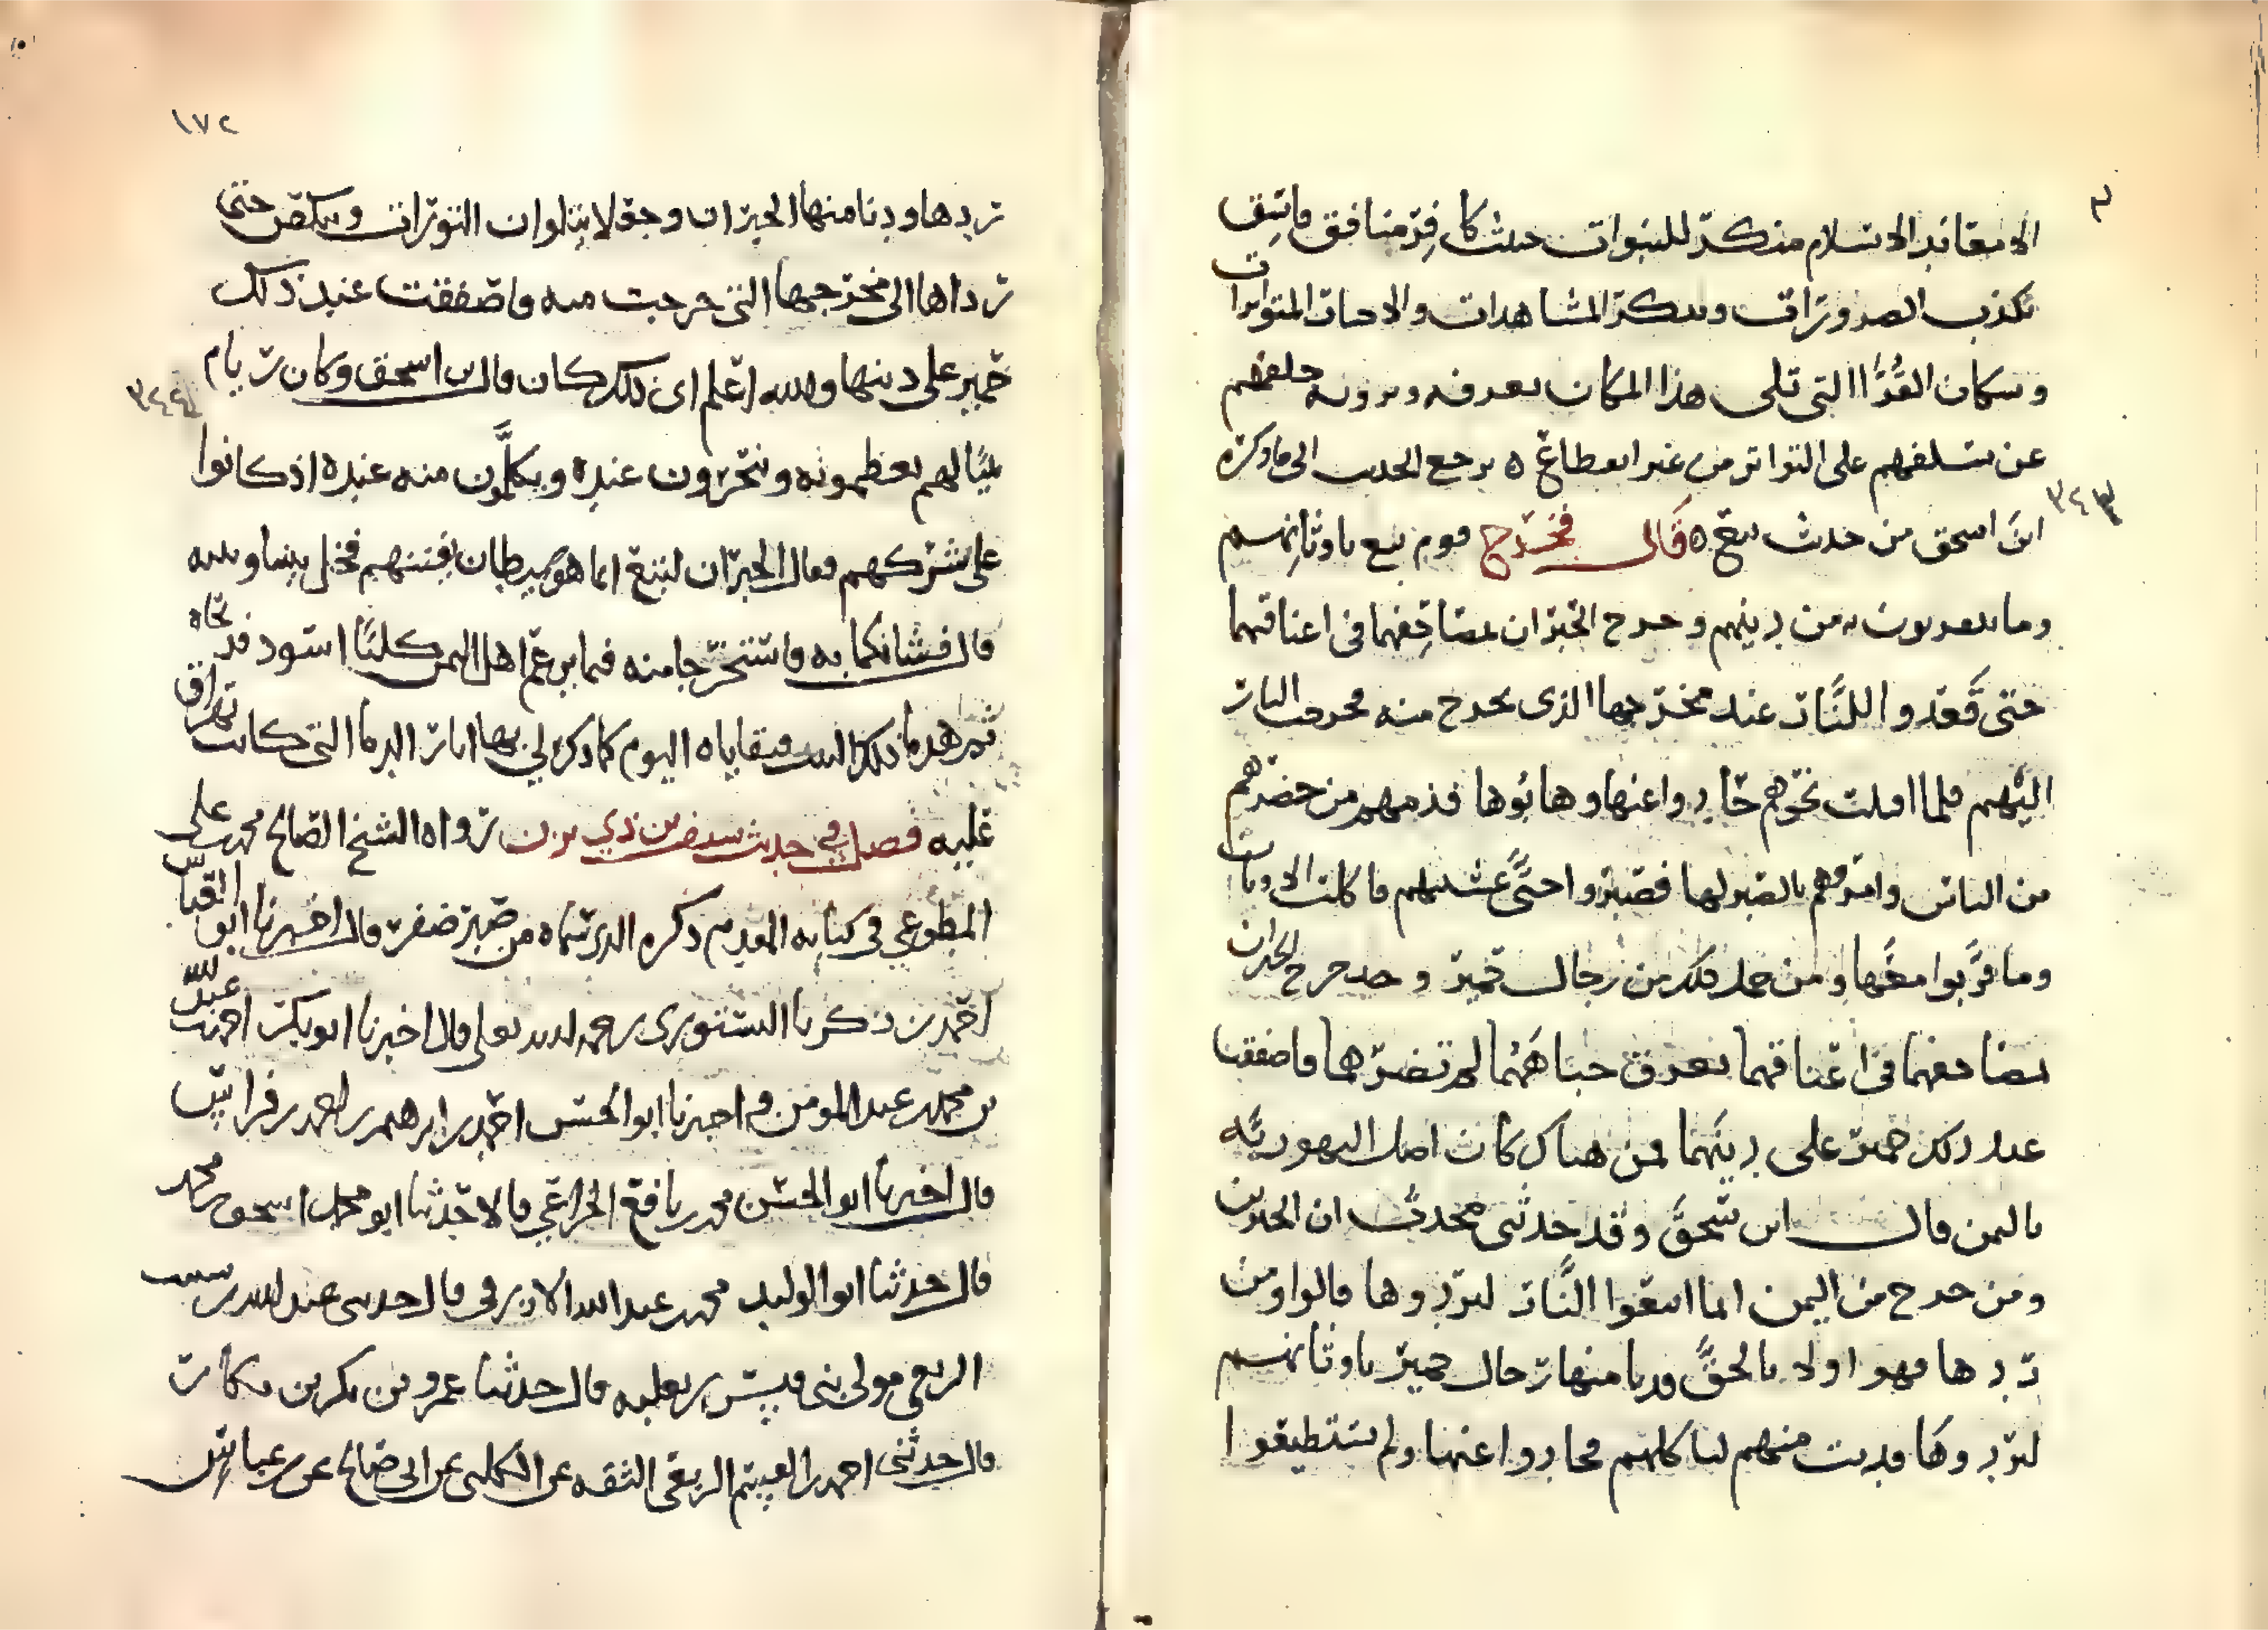 الا معاند الاسلام منكر للنبوات خبيث كافر منافق فاسق
تكذب الضرورات وينكر المشاهدات والاخبار المتواترات
وسكان القرا التي تلي هذا المكان يعرفه ويرونه خلفهم
عن سلفهم على التواتر من غير انقطاع ٥ يرجع الحديث الى ما ذكره
٣٤٣
ابن اسحق من حديث تبع ٥ قال فخرج قوم تبع باوثانهم
وما يتقربون به من دينهم وخرج الحبران بمصاحفهما في اعناقهما
حتى قعدوا للنار عند مخرجها الذي تخرج منه فخرجت النار
اليهم فلما اقبلت نحوهم حادوا عنها وهابوها فذمهم من حضرهم
من الناس وامروهم بالصبر لها فصبروا حتى غشيتهم فاكلت الاوثان
وما قربوا معها ومن حمل ذلك من رجال حمير وخرج الحبران
بمصاحفهما في اعناقهما تعرق جباههما لم تضرهما فاصفقت
عند ذلك حمير على دينهما فمن هناك كان اصل اليهودية
باليمن قال ابن سحق وقد حدثني محدث ان الحبرين
ومن خرج من اليمن انما اتبعوا النار ليردوها قالوا ومن
ردها فهو اولى بالحق فدنا منها رجال حمير باوثانهم
ليردوها فدنت منهم لتاكلهم فحادوا عنها ولم يستطيعوا
١٧٢
ردها ودنا منها الحبران وجعلا يتلوان التورات وتنكص حتى
رداها الى مخرجها التي خرجت منه فاصفقت عند ذلك
حمير على دينها والله اعلم اي ذلك كان قال بن اسحق وكان ريام
٣٤٤
بيتا لهم يعظمونه وينحرون عنده ويكلمون منه عنده اذ كانوا
على شركهم فقال الحبران لتبع انما هو شيطان يفتنهم فخل بيننا وبينه
قال فشانكما به فاستخرجا منه فيما يزعم اهل اليمن كلبا اسود فذبحاه
ثم هدما ذلك البيت فبقاياه اليوم كما ذكر لي بها اثار الدما التي كانت تهراق
عليه فصل في حديث سيف بن ذي يزن رواه الشيخ الصالح محمد بن علي
المطوعي في كتابه المقدم ذكره الذي سماه من صبر ظفر قال اخبرنا ابو العباس
احمد بن زكريا النسوري رحمه الله تعلى قال اخبرنا ابو بكر احمد بن عبد الله
بن محمد بن عبد المومن قال اخبرنا ابو الحسن احمد بن ابرهيم بن احمد بن فراس
قال اخبرنا ابو الحسن محمد بن نافع الخزاعي قالا حدثنا ابو محمد اسحق بن محمد
قال حدثنا ابو الوليد محمد بن عبد الله الازرقي قال حدثني عبد الله بن شبيب
الربعي مولى بني قيس بن ثعلبه قال حدثنا عمرو بن بكر بن بكار
قال حدثني احمد بن القسم الربعي الثقه عن الكلبي عن ابي صالح عن بن عباس